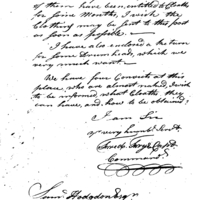 of them have been entitled to Cloth
for some Months, I wish the
Clothing may be sent to this post
as soon as possible.
I have also enclosed a return
for some Drumheads, which we
very much want.
We have four Convicts at this
place who are almost naked, I wish
to be informed, what Cloaths they
can have, and, how to be obtained?
I am Sir
yr very humble Servt
Commandt
Saml Hodgdon Esqr